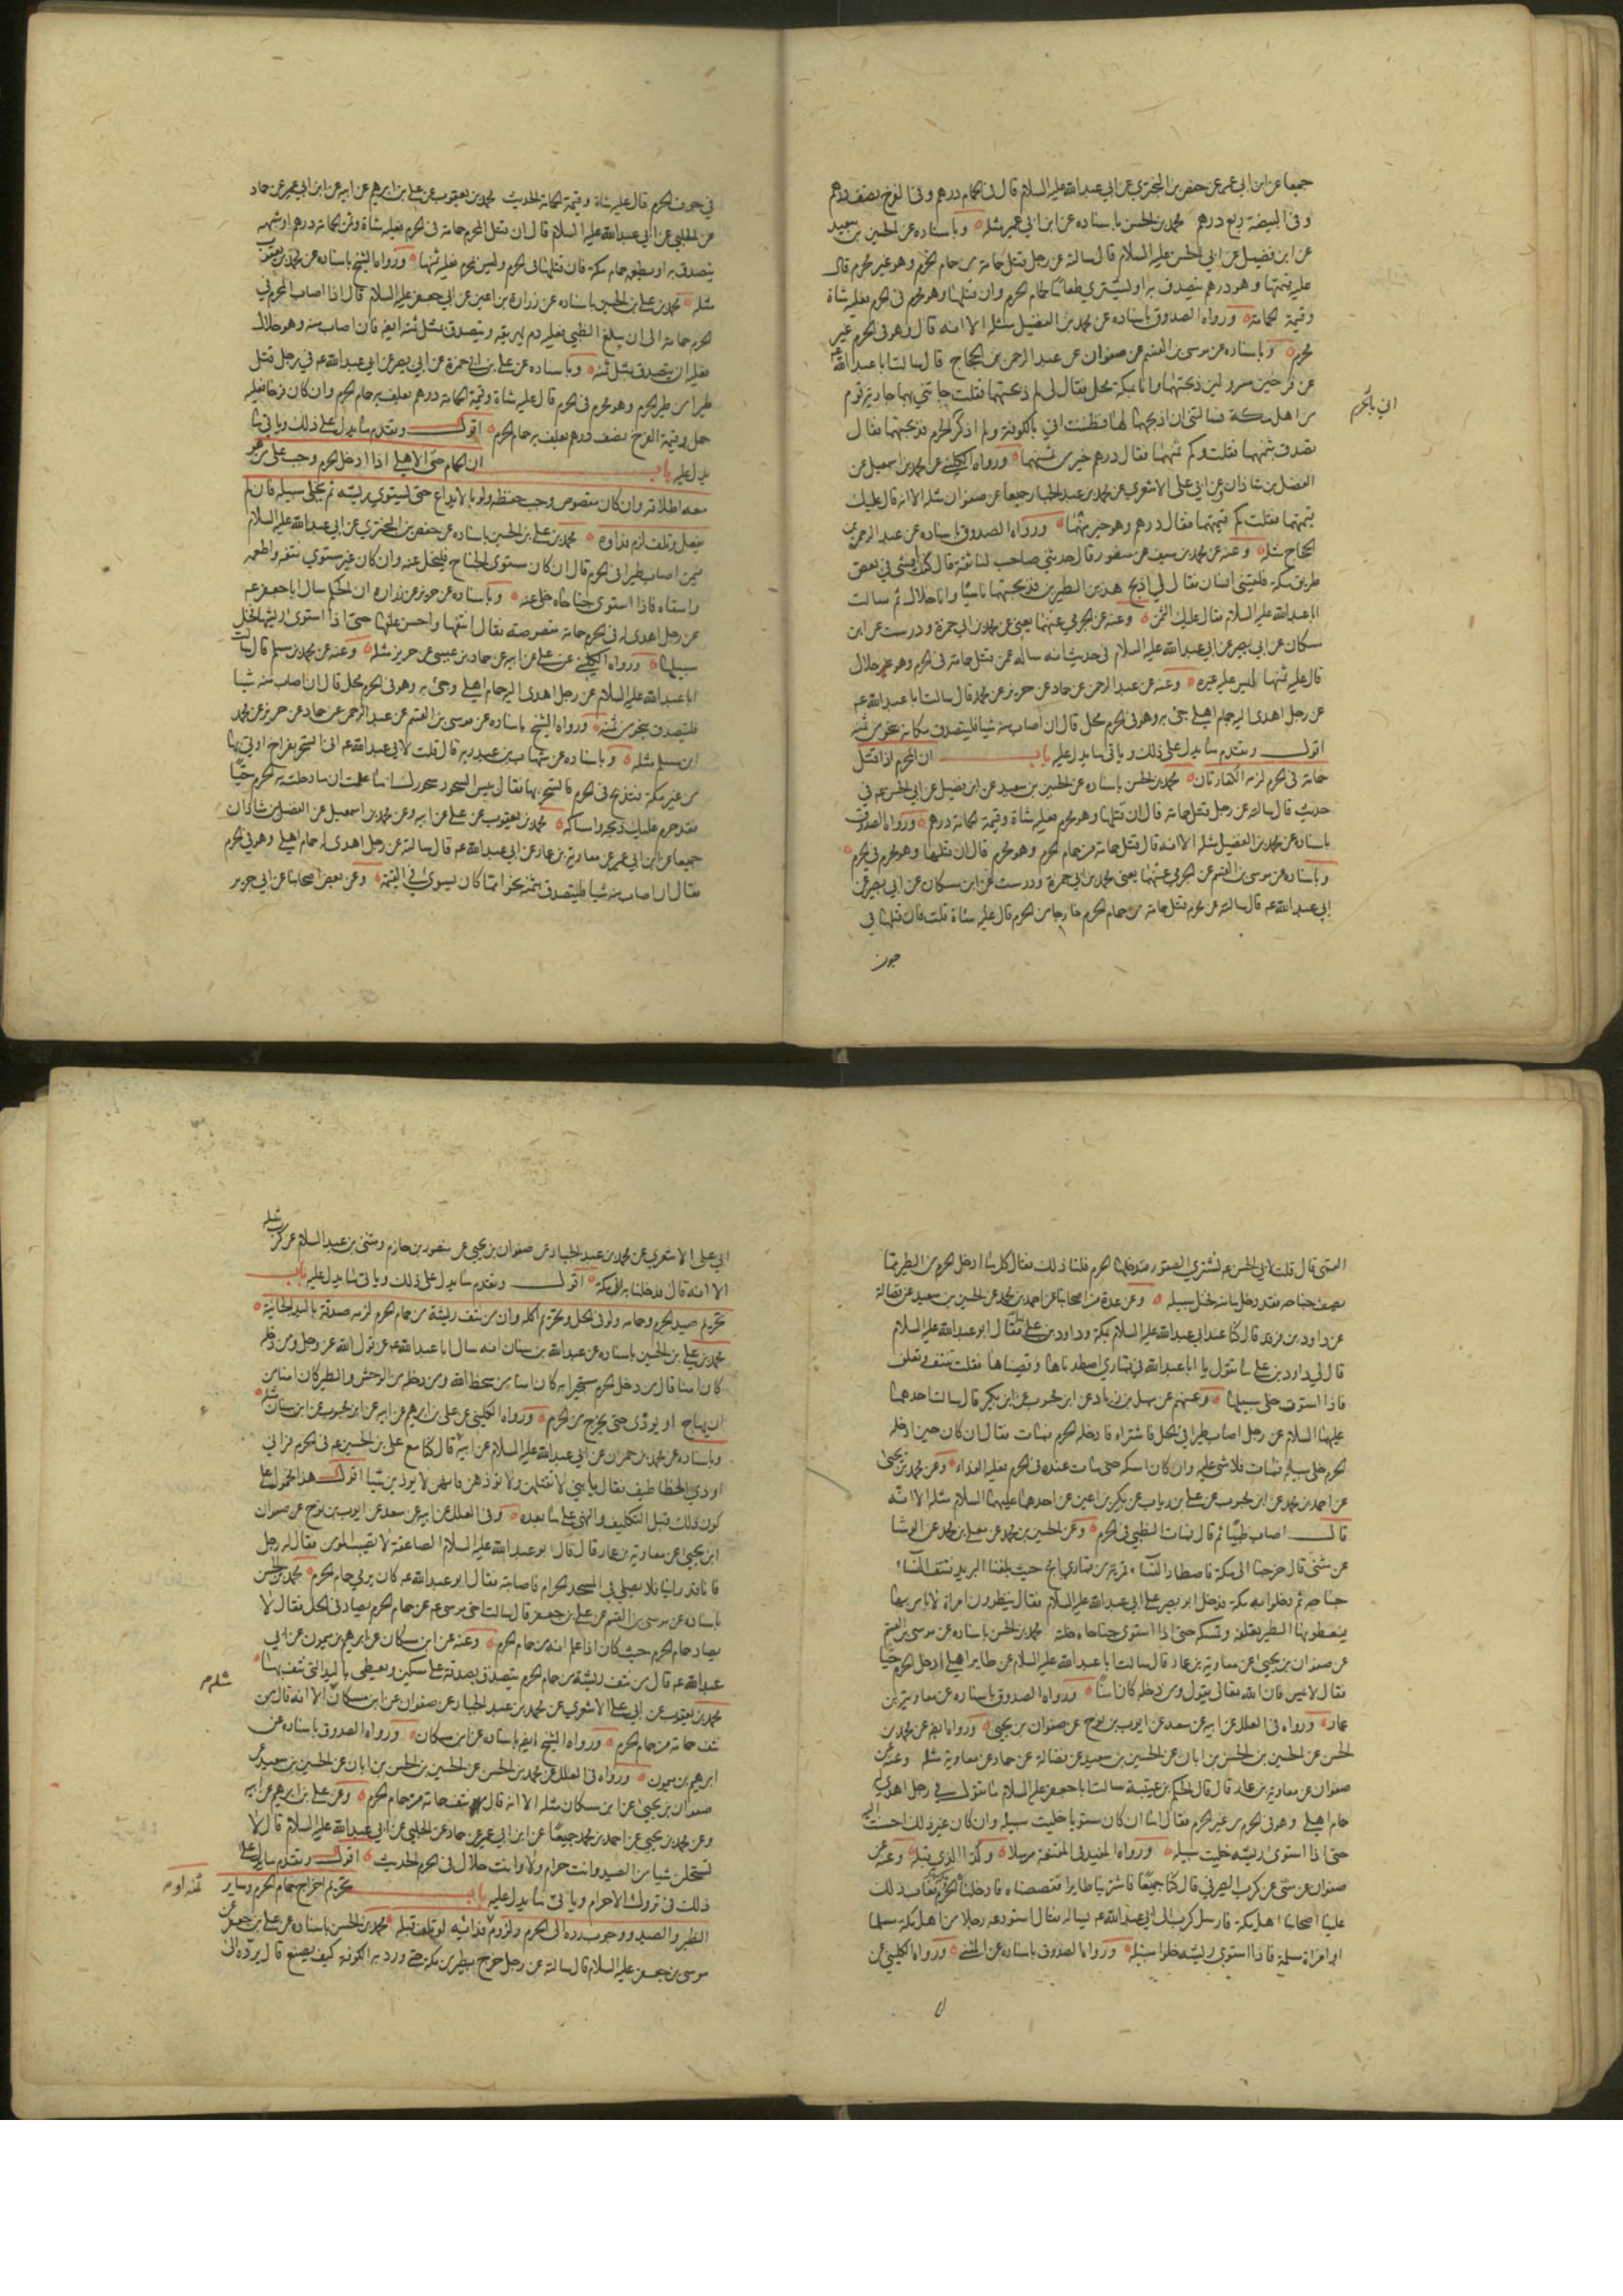 جميعا عن ابن ابي عمير عن حفص بن البختري عن ابي عبد الله عليه السلام قال في الحمام درهم وفي الفرخ نصف درهم
وفي البيضة ربع درهم محمد بن الحسن باسناده عن ابن ابي عمير مثله وباسناده عن الحسين بن سعيد
عن ابن فضيل عن ابي الحسن عليه السلام قال سالته عن رجل قتل حمامة من حمام الحرم وهو غير محرم قال
عليه قيمتها وهو درهم يتصدق به او يشتري طعاما لحمام الحرم وان قتلها وهو محرم في الحرم فعليه شاة
وقيمة الحمامة ورواه الصدوق باسناده عن محمد بن الفضيل مثله الا انه قال وهو في الحرم غير
محرم وباسناده عن موسى بن القسم عن صفوان عن عبد الرحمن بن الحجاج قال سالت ابا عبد الله ع
عن فرخين مسرولين ذبحتهما وانا بمكة محل فقال لي لم ذبحتهما فقلت جائتني بهما جارية قوم
من اهل مكة فسالتني ان اذبحهما لها فظننت اني بالكوفة ولم اذكر الحرم فذبحتهما فقال
اني بالحرم
تصدق بثمنهما فقلت وكم ثمنهما فقال درهم خير من ثمنهما ورواه الكليني عن محمد بن اسمعيل عن
الفضل بن شاذان وعن ابي علي الاشعري عن محمد بن عبد الجبار جميعا عن صفوان مثله الا انه قال عليك
قيمتهما فقلت كم قيمتهما فقال درهم وهو خير منهما ورواه الصدوق باسناده عن عبد الرحمن بن
الحجاج مثله وعنه عن محمد بن سيف عن منصور قال حدثني صاحب لنا ثقة قال كنت امشي في بعض
طريق مكة فلقيني انسان فقال لي اذبح هذين الطيرين فذبحتهما ناسيا وانا حلال ثم سالت
ابا عبد الله عليه السلام فقال عليك الثمن وعنه عن الجرمي عنهما يعني عن محمد بن ابي حمزة ودرست عن ابن
مسكان عن ابي بصير عن ابي عبد الله عليه السلام في حديث انه ساله عمن قتل حمامة في الحرم وهو غير حلال
قال عليه ثمنها ليس عليه غيره وعنه عن عبد الرحمن عن حماد عن حريز عن محمد قال سالت ابا عبد الله عم
عن رجل اهدي اليه حمام اهلي جئ به وهو في الحرم محل قال ان اصاب منه شيا فليتصدق مكانه بنحو من ثمنه
اقول وتقدم ما يدل على ذلك وياتي ما يدل عليه باب ان المحرم اذا قتل
حمامة في الحرم لزمه الكفارتان محمد بن الحسن باسناده عن الحسين بن سعيد عن ابن فضيل عن ابي الحسن عم في
حديث قال سالته عن رجل قتل حمامة قال ان قتلها وهو محرم فعليه شاة وقيمة الحمامة درهم ورواه الصدوق
باسناده عن محمد بن الفضيل مثله الا انه قال قتل حمامة من حمام الحرم وهو محرم قال ان قتلها وهو محرم في الحرم
وباسناده عن موسى بن القسم عن الجرمي عنهما يعني محمد بن ابي حمزة ودرست عن ابن مسكان عن ابي بصير عن
ابي عبد الله عم قال سالته عن محرم قتل حمامة من حمام الحرم خارجا من الحرم قال عليه شاة قلت فان قتلها في
جوف
في جوف الحرم قال عليه شاة وقيمة الحمامة الحديث محمد بن يعقوب عن علي بن ابرهيم عن ابيه عن ابن ابي عمير عن حماد
عن الحلبي عن ابي عبد الله عليه السلام قال ان قتل المحرم حمامة في الحرم فعليه شاة وثمن الحمامة درهم او شبهه
يتصدق به او يطعمه حمام مكة فان قتلها في الحرم وليس بمحرم فعليه ثمنها ورواه الشيخ باسناده عن محمد بن يعقوب
مثله محمد بن علي بن الحسين باسناده عن زرارة بن اعين عن ابي جعفر عليه السلام قال اذا اصاب المحرم في
الحرم حمامة الى ان يبلغ الظبي فعليه دم يهريقه ويتصدق بمثل ثمنه ايضا فان اصاب منه وهو حلال
فعليه ان يتصدق بمثل ثمنه وباسناده عن علي بن ابي حمزة عن ابي بصير عن ابي عبد الله عم في رجل قتل
طيرا من طير الحرم وهو محرم في الحرم قال عليه شاة وقيمة الحمامة درهم يعلف به حمام الحرم وان كان فرخا فعليه
حمل وقيمة الفرخ نصف درهم يعلف به حمام الحرم اقول وتقدم ما يدل على ذلك وياتي ما
يدل عليه باب ان الحمام حتى الاهلي اذا ادخل الحرم وجب على من هو
معه اطلاقه وان كان مقصوص وجب حفظه ولو بالايداع حتى يستوي ريشه ثم يخلى سبيله فان لم
يفعل وتلف لزم فداوه محمد بن علي بن الحسين باسناده عن حفص بن البختري عن ابي عبد الله عليه السلام
فيمن اصاب طيرا في الحرم قال ان كان مستوي الجناح فليخل عنه وان كان غير مستوي نتفه واطعمه
واسقاه فاذا استوى جناحاه خلى عنه وباسناده عن حريز عن زراره ان الحكم سال ابا جعفر عم
عن رجل اهدي له في الحرم حمامة مقصوصة فقال انتفها واحسن علفها حتى اذا استوى ريشها فخل
سبيلها ورواه الكليني عن علي عن ابيه عن حماد بن عيسى عن حريز مثله وعنه عن محمد بن مسلم قال سالت
ابا عبد الله عليه السلام عن رجل اهدى اليه حمام اهلي وجئ به وهو في الحرم محل قال ان اصاب منه شيا
فليتصدق بنحو من ثمنه ورواه الشيخ باسناده عن موسى بن القسم عن عبد الرحمن عن حماد عن حريز عن محمد
ابن مسلم مثله وباسناده عن شهاب بن عبد ربه قال قلت لابي عبد الله عم اني اتسحر بفراخ اوتى بها
من غير مكة فتذبح في الحرم فاتسحر بها فقال بئس السحور سحورك اما علمت ان ما دخلت به الحرم حيا
فقد حرم عليك ذبحه وامساكه محمد بن يعقوب عن علي عن ابيه وعن محمد بن اسمعيل عن الفضل بن شاذان
جميعا عن ابن ابي عمير عن معاوية بن عمار عن ابي عبد الله عم قال سالته عن رجل اهدى له حمام اهلي وهو في الحرم
فقال ان اصاب منه شيا فليتصدق بثمنه نحوا مما كان يسوى في القيمة وعن بعض اصحابنا عن ابي جرير
القمي قال قلت لابي الحسن عم نشتري الصقور فندخلها الحرم فلنا ذلك فقال كل ما ادخل الحرم من الطير مما
يصف جناحه فقد دخل مامنه فخل سبيله وعن عدة من اصحابنا عن احمد بن محمد عن الحسين بن سعيد عن فضالة
عن داود بن فرقد قال كنا عند ابي عبد الله عليه السلام بمكة وداود بن علي بها فقال ابو عبد الله عليه السلام
قال لي داود بن علي ما تقول يا ابا عبد الله في قماري اصطدناها وقصيناها فقلت تنتف وتعلف
فاذا استوت خلى سبيلها وعنهم عن سهل بن زياد عن ابن محبوب عن ابن بكير قال سالت احدهما
عليهما السلام عن رجل اصاب طيرا في الحل فاشتراه فادخله الحرم فمات فقال ان كان حين ادخله
الحرم خلى سبيله فمات فلا شئ عليه وان كان امسكه حتى مات عنده في الحرم فعليه الفداء وعن محمد بن يحيى
عن احمد بن محمد عن ابن محبوب عن علي بن رياب عن بكير بن اعين عن احدهما عليهما السلام مثله الا انه
قال اصاب ظبيا ثم قال فمات الظبي في الحرم وعن الحسين بن محمد عن معلى بن محمد عن الوشا
عن مثنى قال خرجنا الى مكة فاصطاد النساء قمرية من قماري امج حيث بلغنا البريد فنتف النساء
جناحه ثم دخلوا به مكة فدخل ابو بصير على ابي عبد الله عليه السلام فقال ينظرون امراة لا باس بها
فيعطونها الطير تعلفه وتمسكه حتى اذا استوى جناحاه خلته محمد بن الحسن باسناده عن موسى بن القسم
عن صفوان بن يحيى عن معاوية بن عمار قال سالت ابا عبد الله عليه السلام عن طاير اهلي ادخل الحرم حيا
فقال لا يمس فان الله تعالى يقول ومن دخله كان امنا ورواه الصدوق باسناده عن معاوية بن
عمار ورواه في العلل عن ابيه عن سعد عن ايوب بن نوح عن صفوان بن يحيى ورواه ايضا عن محمد بن
الحسن عن الحسين بن الحسن بن ابان عن الحسين بن سعيد عن فضالة عن حماد عن معاوية مثله وعنه عن
صفوان عن معاوية بن عمار قال قال الحكم بن عتيبة سالت ابا جعفر عليه السلام ما تقول في رجل اهدي له
حمام اهلي وهو في الحرم من غير الحرم فقال اما ان كان مستويا خليت سبيله وان كان غير ذلك احسنت اليه
حتى اذا استوى ريشه خليت سبيله ورواه المفيد في المقنعة مرسلا وكذا الذي قبله وعنه عن
صفوان عن مثنى عن كرب الصيرفي قال كنا جميعا فاشترينا طايرا فقصصناه فادخلناه الحرم فعاب ذلك
علينا اصحابنا اهل مكة فارسل كرب الى ابي عبد الله عم يساله فقال استودعه رجلا من اهل مكة مسلما
او امراة مسلمة فاذا استوى ريشه خلوا سبيله ورواه الصدوق باسناده عن المثنى ورواه الكليني عن
ابي علي الاشعري عن محمد بن عبد الجبار عن صفوان بن يحيى عن منصور بن حازم ومثنى بن عبد السلام عن كرب مثله
الا انه قال فدخلنا به الى مكة اقول وتقدم ما يدل على ذلك وياتي ما يدل عليه باب
تحريم صيد الحرم وحمامه ولو في الحل وتحريم اكله وان من نتف ريشة من حمام الحرم لزمه صدقة باليد الجانية
محمد بن علي بن الحسين باسناده عن عبد الله بن سنان انه سال ابا عبد الله عم عن قول الله عز وجل ومن دخله
كان امنا قال من دخل الحرم مستجيرا به كان امنا من سخط الله ومن دخله من الوحش والطير كان امنا من
ان يهاج او يوذى حتى يخرج من الحرم ورواه الكليني عن علي بن ابرهيم عن ابيه عن ابن محبوب عن ابن سنان مثله
وباسناده عن محمد بن حمران عن ابي عبد الله عليه السلام عن ابيه قال كنا مع علي بن الحسين عم في الحرم فراني
اوذي الخطاطيف فقال يا بني لا تقتلهن ولا توذهن فانهن لا يوذين شيا اقول هذا محمول على
كون ذلك قبل التكليف والنهي على ما بعده وفي العلل عن ابيه عن سعد عن ايوب بن نوح عن صفوان
ابن يحيى عن معاوية بن عمار قال قال ابو عبد الله عليه السلام الصاعقة لا تصيب المومن فقال له رجل
فانا قد راينا فلانا يصلي في المسجد الحرام فاصابته فقال ابو عبد الله عم كان يرمي حمام الحرم محمد بن الحسن
باسناده عن موسى بن القسم عن علي بن جعفر قال سالت اخي موسى عم عن حمام الحرم يصاد في الحل فقال لا
يصاد حمام الحرم حيث كان اذا علم انه من حمام الحرم وعنه عن ابن مسكان عن ابرهيم بن ميمون عن ابي
عبد الله عم قال من نتف ريشة من حمام الحرم يتصدق بصدقة على مسكين ويعطي باليد التي نتف بها
محمد بن يعقوب عن ابي علي الاشعري عن محمد بن عبد الجبار عن صفوان عن ابن مسكان الا انه قال من
مثله
نتف حمامة من حمام الحرم ورواه الشيخ ايضا باسناده عن ابن مسكان ورواه الصدوق باسناده عن
ابرهيم بن ميمون ورواه في العلل عن محمد بن الحسن عن الحسين بن الحسن بن ابان عن الحسين بن سعيد عن
صفوان بن يحيى عن ابن مسكان مثله الا انه قال نتف حمامة من حمام الحرم وعن علي بن ابرهيم عن ابيه
وعن محمد بن يحيى عن احمد بن محمد جميعا عن ابن ابي عمير عن حماد عن الحلبي عن ابي عبد الله عليه السلام قال لا
تستحلن شيا من الصيد وانت حرام ولا وانت حلال في الحرم الحديث اقول وتقدم ما يدل على
ذلك في تروك الاحرام وياتي ما يدل عليه باب تحريم اخراج حمام الحرم وساير
الطير والصيد ووجوب رده الى الحرم ولزوم فدائه لو تلف قبله محمد بن الحسن باسناده عن علي بن جعفر عن
موسى بن جعفر عليه السلام قال سالته عن رجل خرج بطير من مكة حتى ورد به الكوفة كيف يصنع قال يرده الى